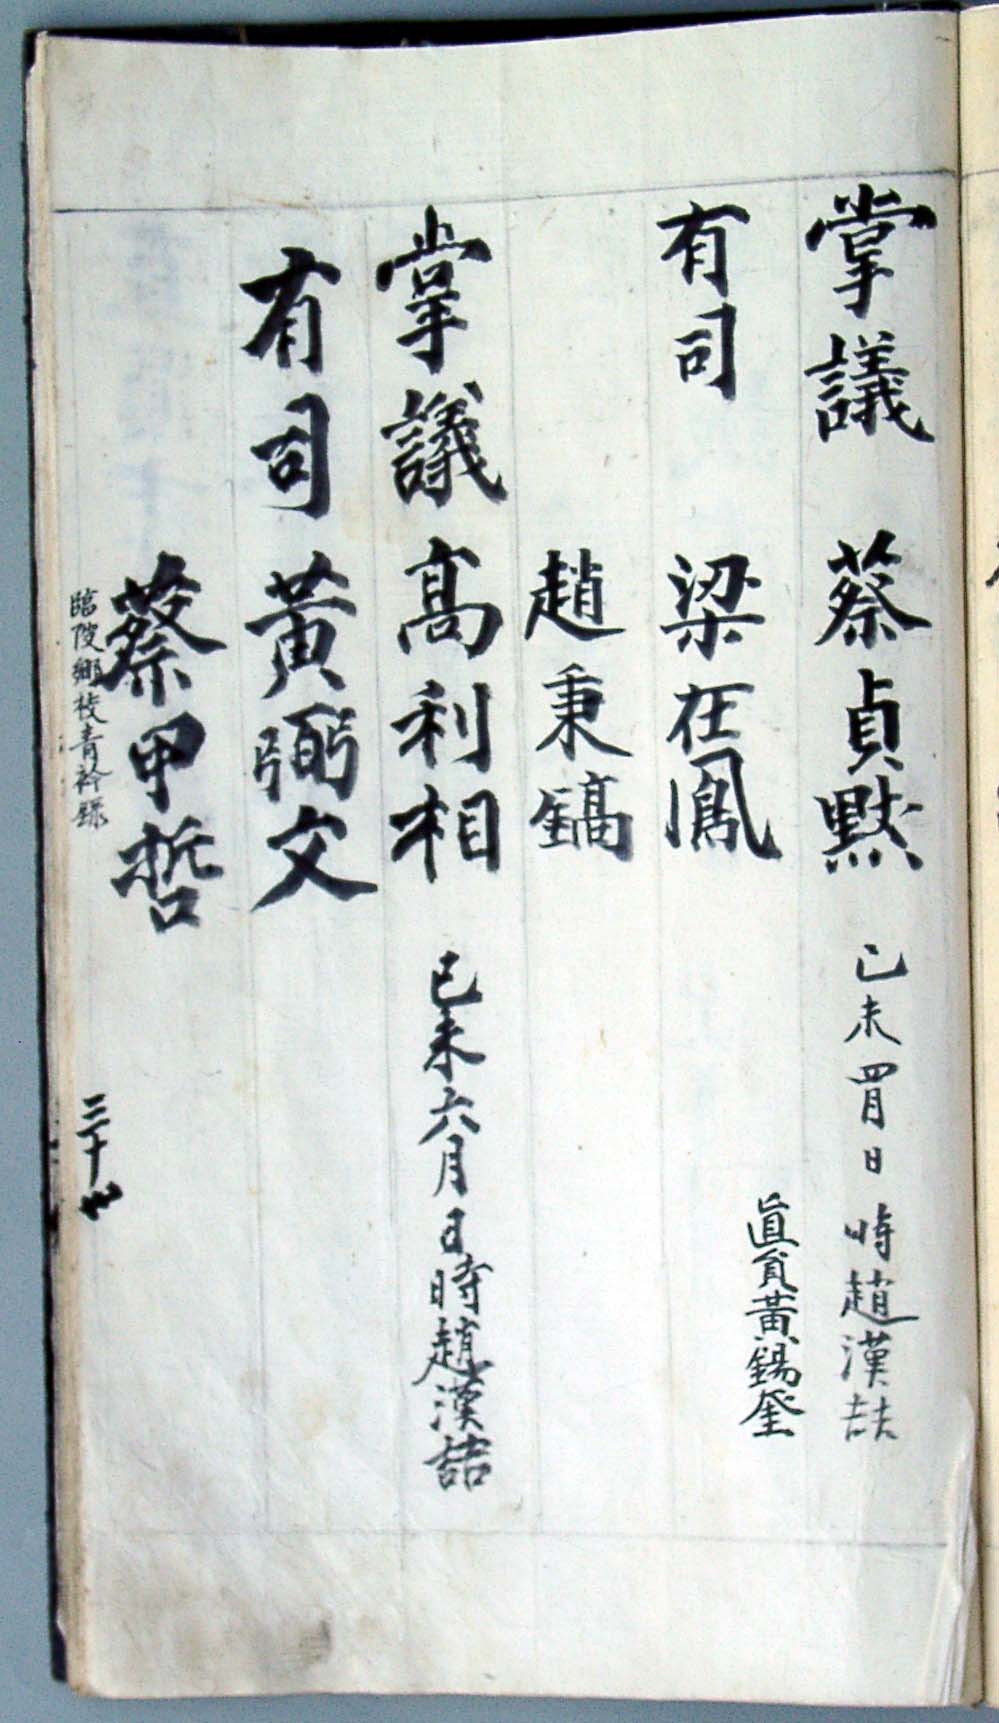 掌議 蔡貞黙 己未四月日 時趙漢喆
有司 梁在鳳 直員黃錫奎
趙秉鎬
掌議 高利相 己未六月日時趙漢喆
有司 黃弼文
蔡甲哲
臨陂鄕校靑衿錄
三十